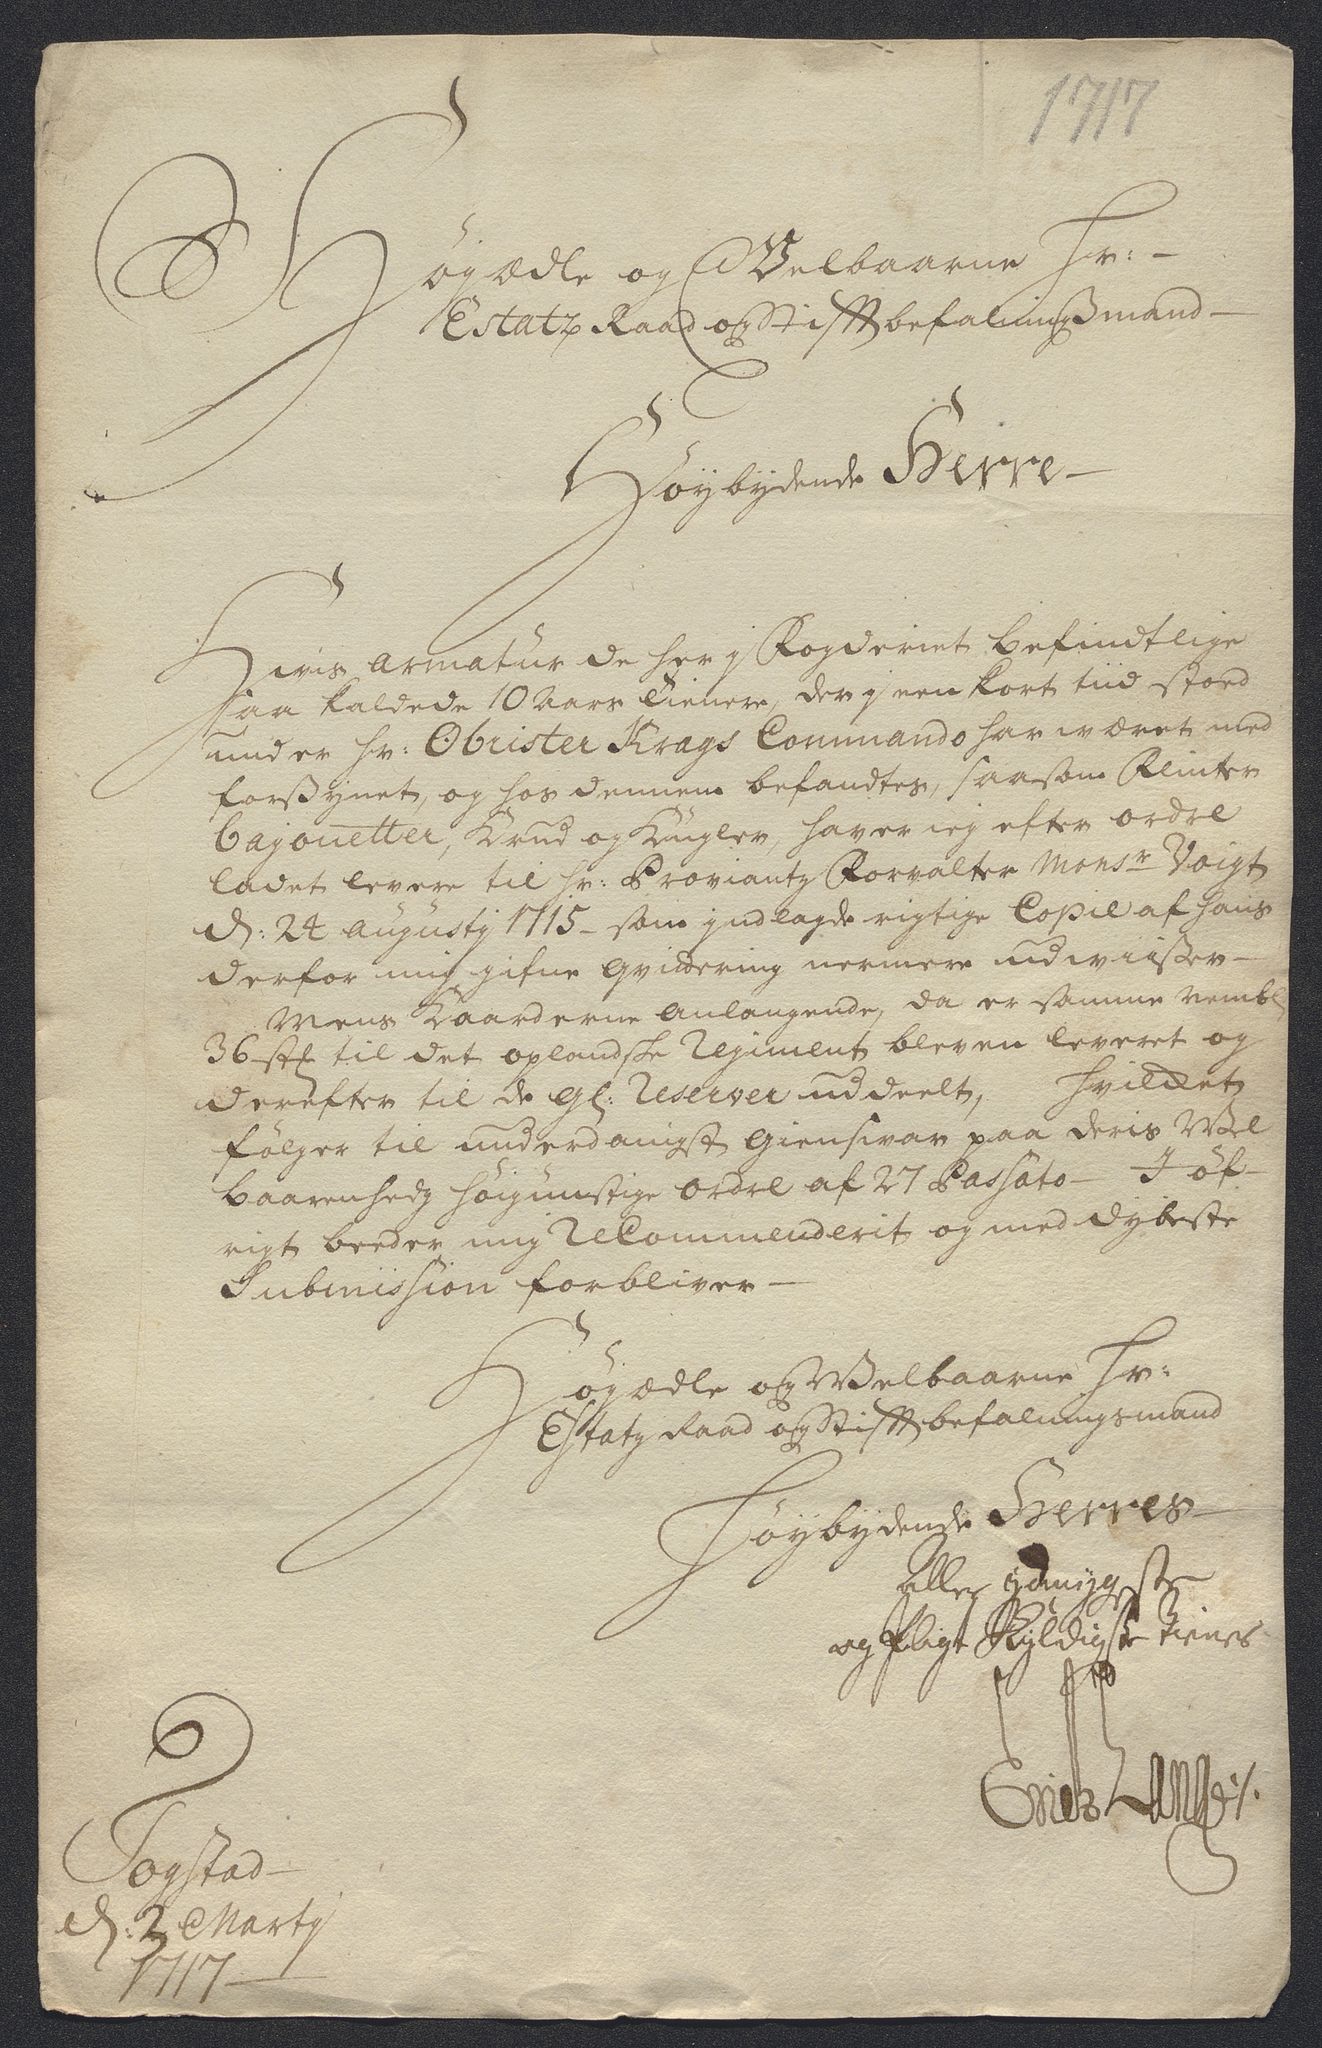 1717
Høyædle og Velbaarne Hr: -
Estatz Raad og Stifftbefalningßmand -
Høybydende Herre -
Hvis armatur de her j Fogderiet befindtlige
saa kaldede 10 Aars Tienere, der j een kort tiid stoed
under Hr: Obrister Krags Commando har wæret med
forßynet, og hos dennem befandtes, saasom Flinter
Bajonetter, Krud og Kugler, haver ieg efter ordre
ladet levere til Hr: Proviantz Forvalter Monsr Voigt
d: 24 Augustj 1715 - som jndlagde rigtige Copie af hans
derfor mig gifne Qvidering nermere udwiisßer -
Mens Kaarderne anlangende, da er samme nembl:
36 stk til det oplandske Regiment bleven leveret og
derefter til de gl: Reserver uddeelt, hvilket
følger til underdanigst giensvar paa deris Wel
baarenhedz høigunstige ordre af 27 Passato - J øf-
rigt beeder mig reCommenderit og med dybeste
Submission forbliver -
Høyædle og Welbaarne Hr:
Estatz Raad og Stifftbefalningsmand
Høybydende Herres -
aller ydmygste
og pligt Skyldigste tiener
Erich Lange
Fogstad -
d: 2 Martj
1717 -